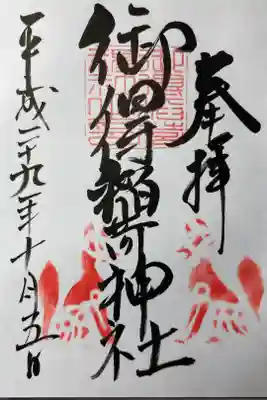 奉拝
御得稲荷神社
平成二十九年十月五日